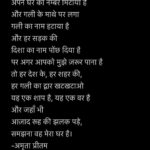 अपने घर का नम्बर मिटाया है
और गली के माथे पर लगा
गली का नाम हटाया है
और हर सड़क की
दिशा का नाम पोंछ दिया है
पर अगर आपको मुझे ज़रूर पाना है
तो हर देश के, हर शहर की,
हर गली का द्वार खटखटाओ
यह एक शाप है, यह एक वर है
और जहाँ भी
आज़ाद रूह की झलक पड़े,
समझना वह मेरा घर है।
-अमृता प्रीतम